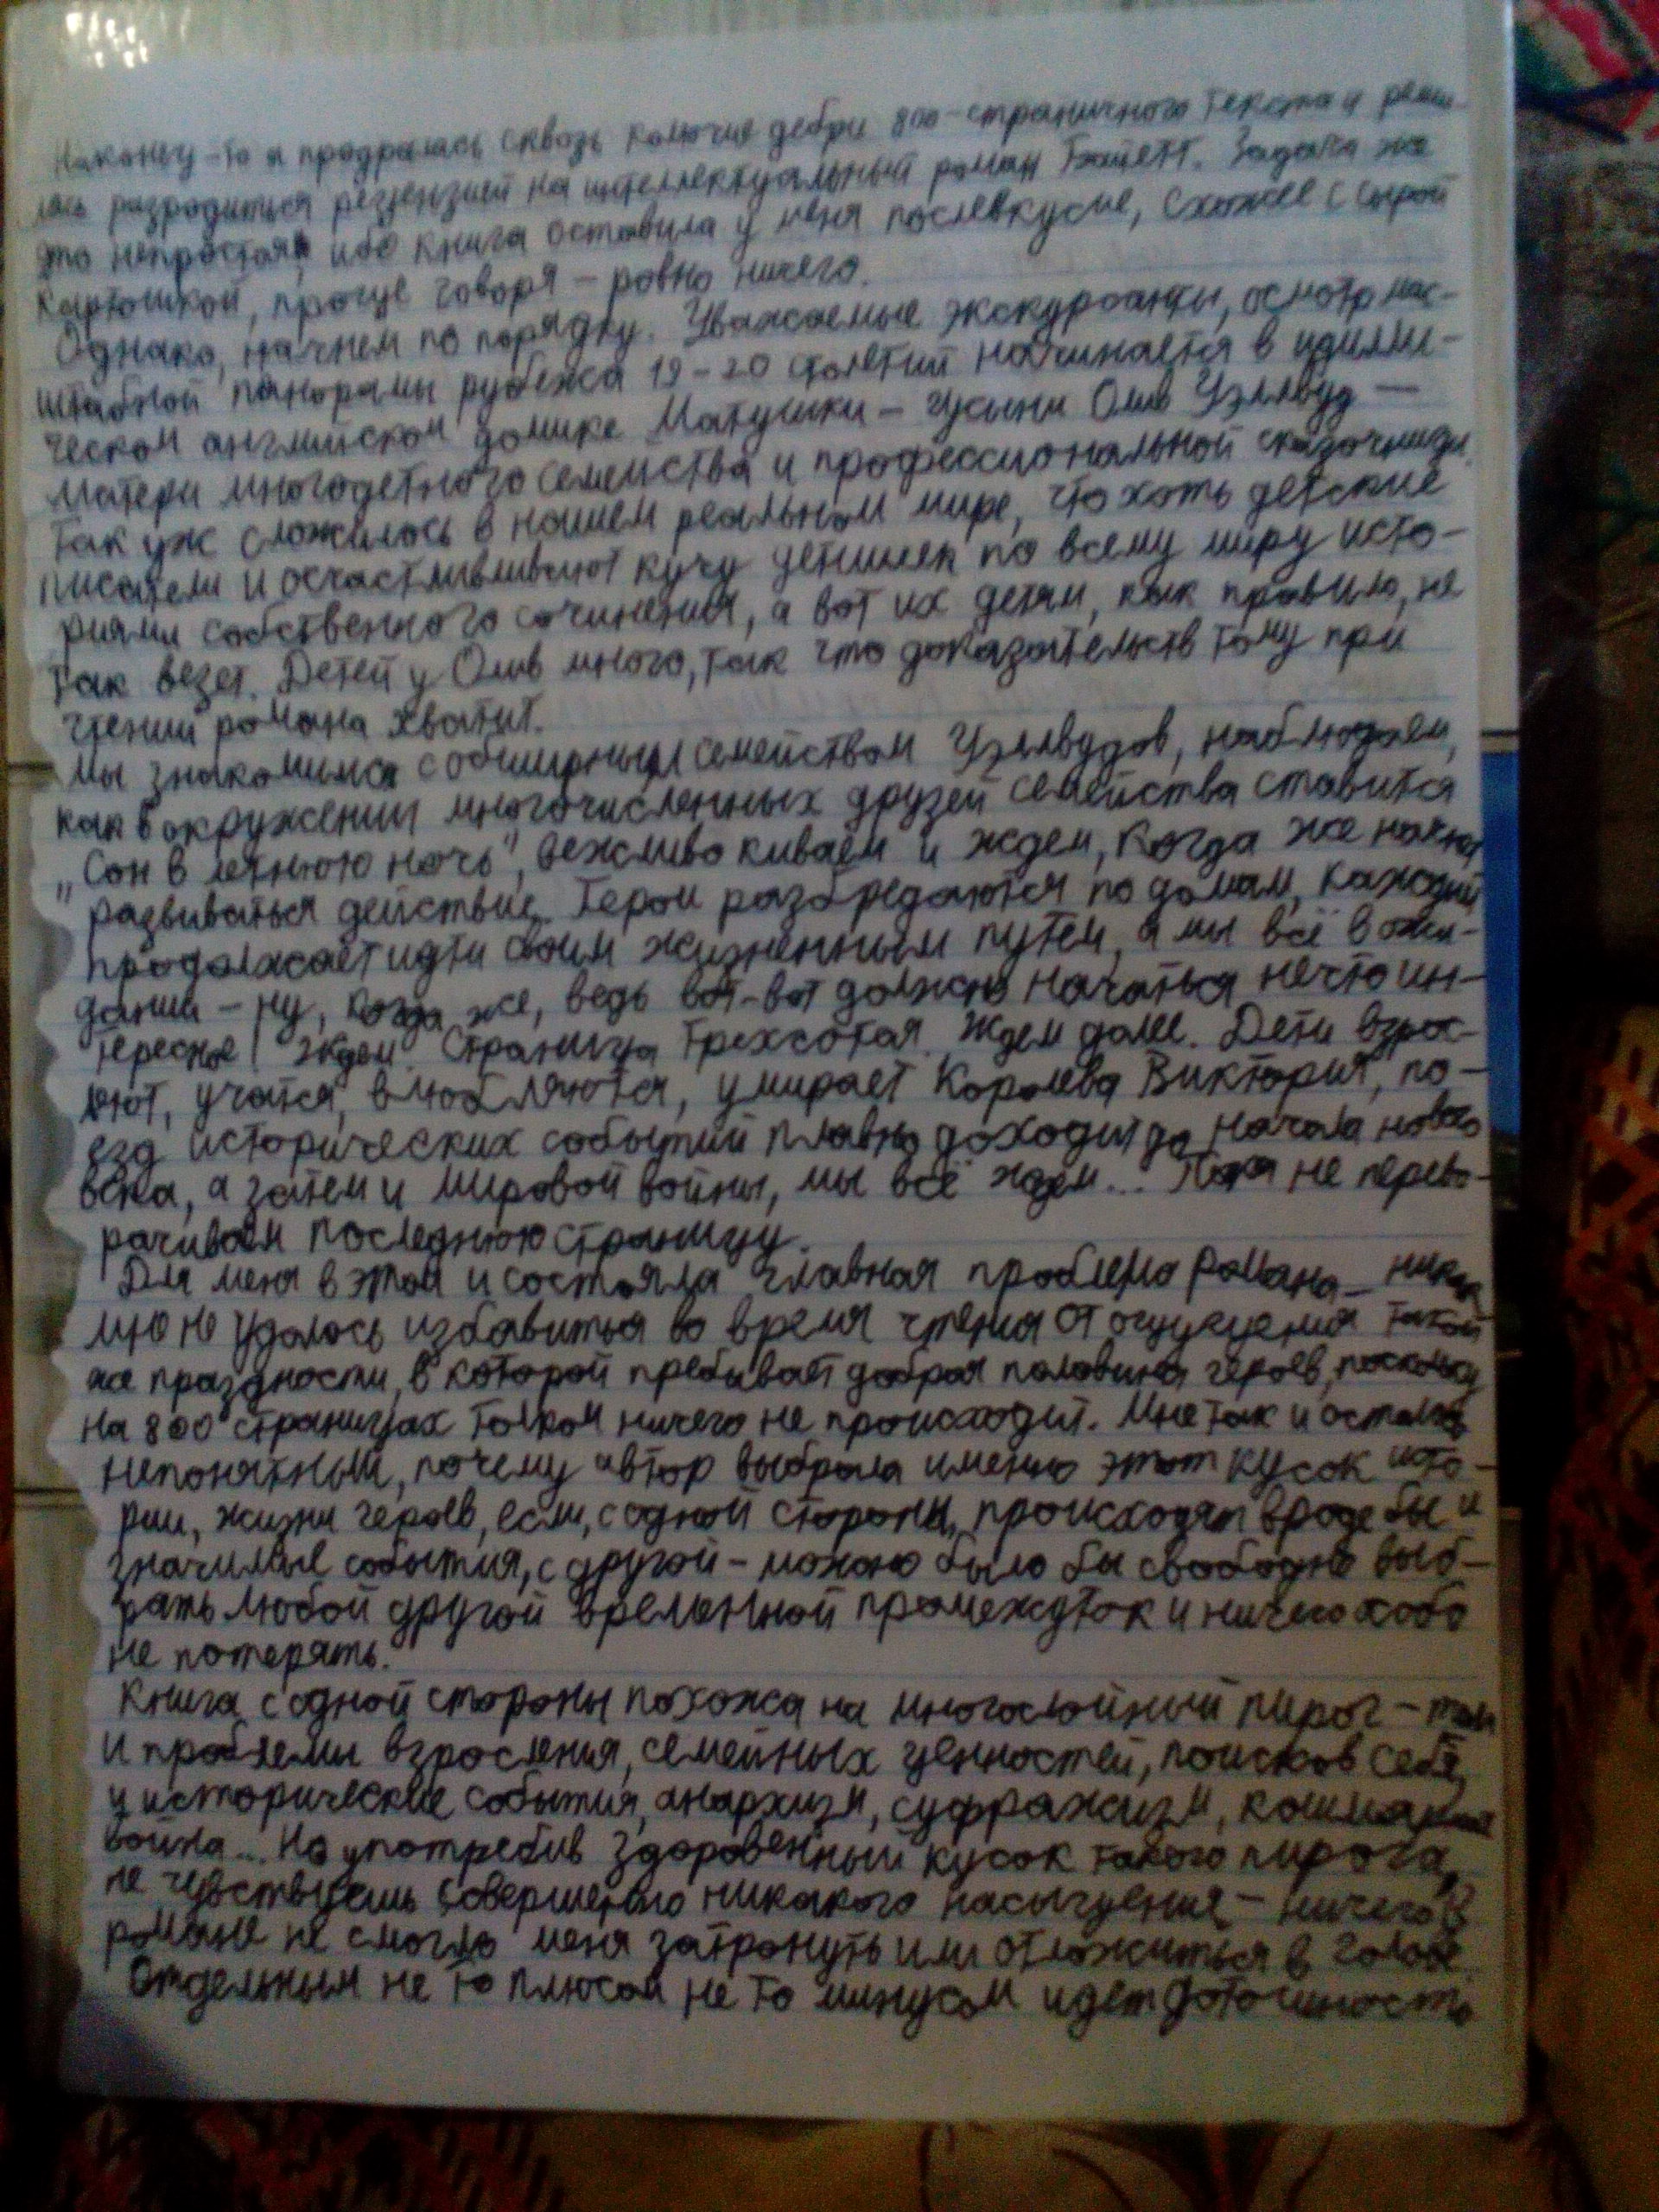 Наконец-то я продралась сквозь колючие дебри 800-страничного текста и реши-
лась разродиться рецензией на интеллектуальный роман Байетт. Задача же
это непростая, ибо книга оставила у меня послевкусие, схожее с сырой
картошкой, проще говоря – ровно ничего.
Однако, начнем по порядку. Уважаемые экскурсанты, осмотр мас-
штабной панорамы рубежа 19-20 столетий начинается в идилли-
ческом английском домике Матушки-Гусыни Олив Уэллвуд —
матери многодетного семейства и профессиональной сказочницы.
Так уж сложилось в нашем реальном мире, что хоть детские
писатели и осчастливливают кучу детишек по всему миру исто-
риями собственного сочинения, а вот их детям, как правило, не
так везет. Детей у Олив много, так что доказательств тому при
чтении романа хватит.
Мы знакомимся с обширным семейством Уэллвудов, наблюдаем,
как в окружении многочисленных друзей семейства ставится
„Сон в летнюю ночь", вежливо киваем и ждем, когда же начнет
развиваться действие. Герои разбредаются по домам, каждый
продолжает идти своим жизненным путем, а мы всё в ожи-
дании – ну, когда же, ведь вот-вот должно начаться нечто ин-
тересное! Ждем. Страница трехсотая. Ждем далее. Дети взрос-
леют, учатся, влюбляются, умирает Королева Виктория, по-
езд исторических событий плавно доходит до начала нового
века, а затем и мировой войны, мы всё ждем... Пока не перево-
рачиваем последнюю страницу.
Для меня в этом и состояла главная проблема романа – никак
мне не удалось избавиться во время чтения от ощущения такой
же праздности, в которой пребывает добрая половина героев, поскольку
на 800 страницах толком ничего не происходит. Мне так и осталось
непонятным, почему автор выбрала именно этот кусок исто-
рии, жизни героев, если, с одной стороны, происходят вроде бы и
значимые события, с другой – можно было бы свободно выб-
рать любой другой временной промежуток и ничего особо
не потерять.
Книга с одной стороны похожа на многослойный пирог – там
и проблемы взросления, семейных ценностей, поисков себя,
и исторические события, анархизм, суфражизм, кошмарная
война... Но употребив здоровенный кусок такого пирога,
не чувствуешь совершенно никакого насыщения – ничего в
романе не смогло меня затронуть или отложиться в голове.
Отдельным не то плюсом не то минусом идет дотошность